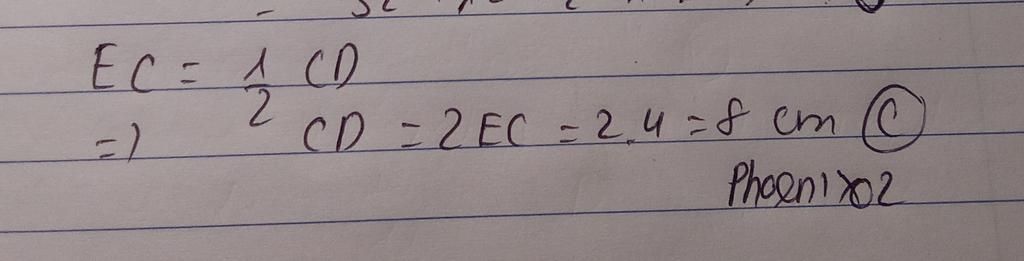 EC = 1/2 CD
=> CD = 2EC = 2.4 = 8 cm Ⓒ
Phoenix02